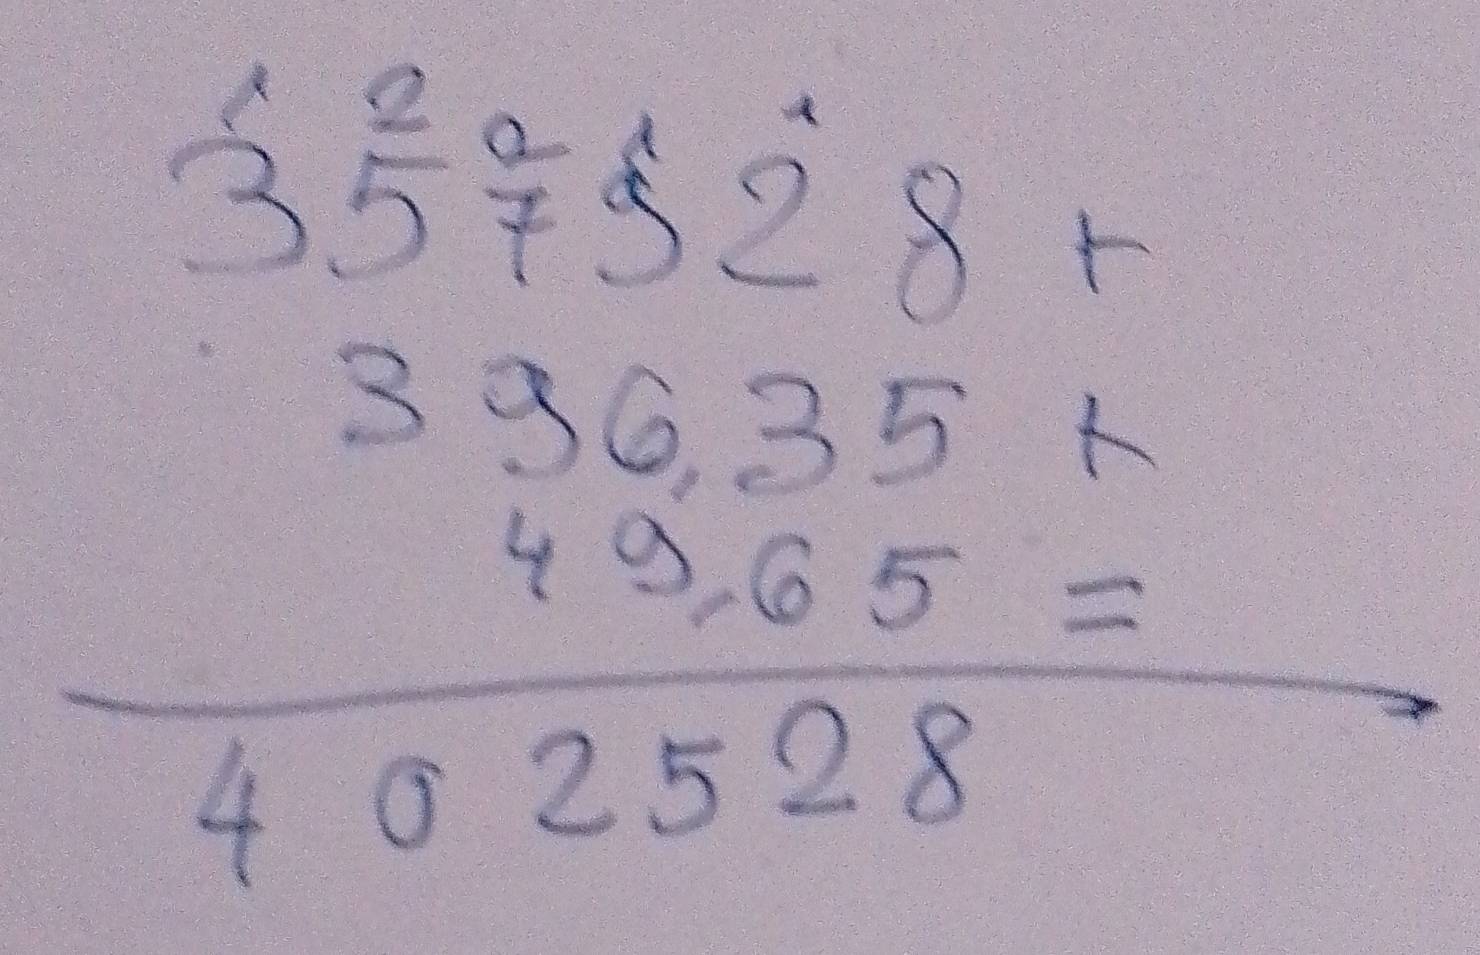 1 2 2 1 1
357928 +
396,35 +
49,65 =
402528